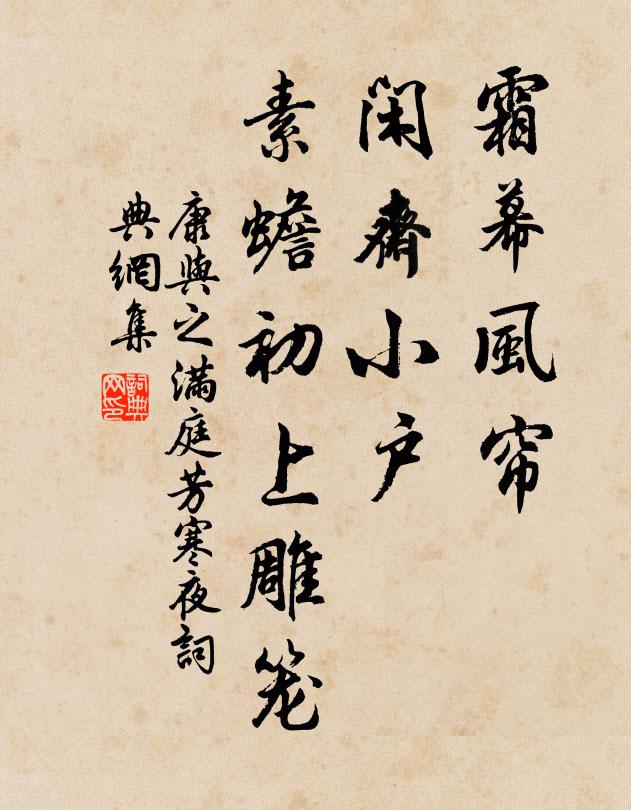 霜幕風帘
閑齊小户
素蟾初上雕笼
康與之滿庭芳寒夜詞
典網集
詞典网印